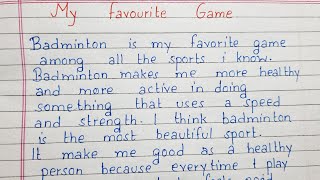 My favourite Game
Badminton is my favorite game
among all the sports i know.
Badminton makes me more healthy
and more active in doing
something that uses a speed
and strength. I think badminton
is the most beautiful sport.
It make me good as a healthy
person because everytime I play